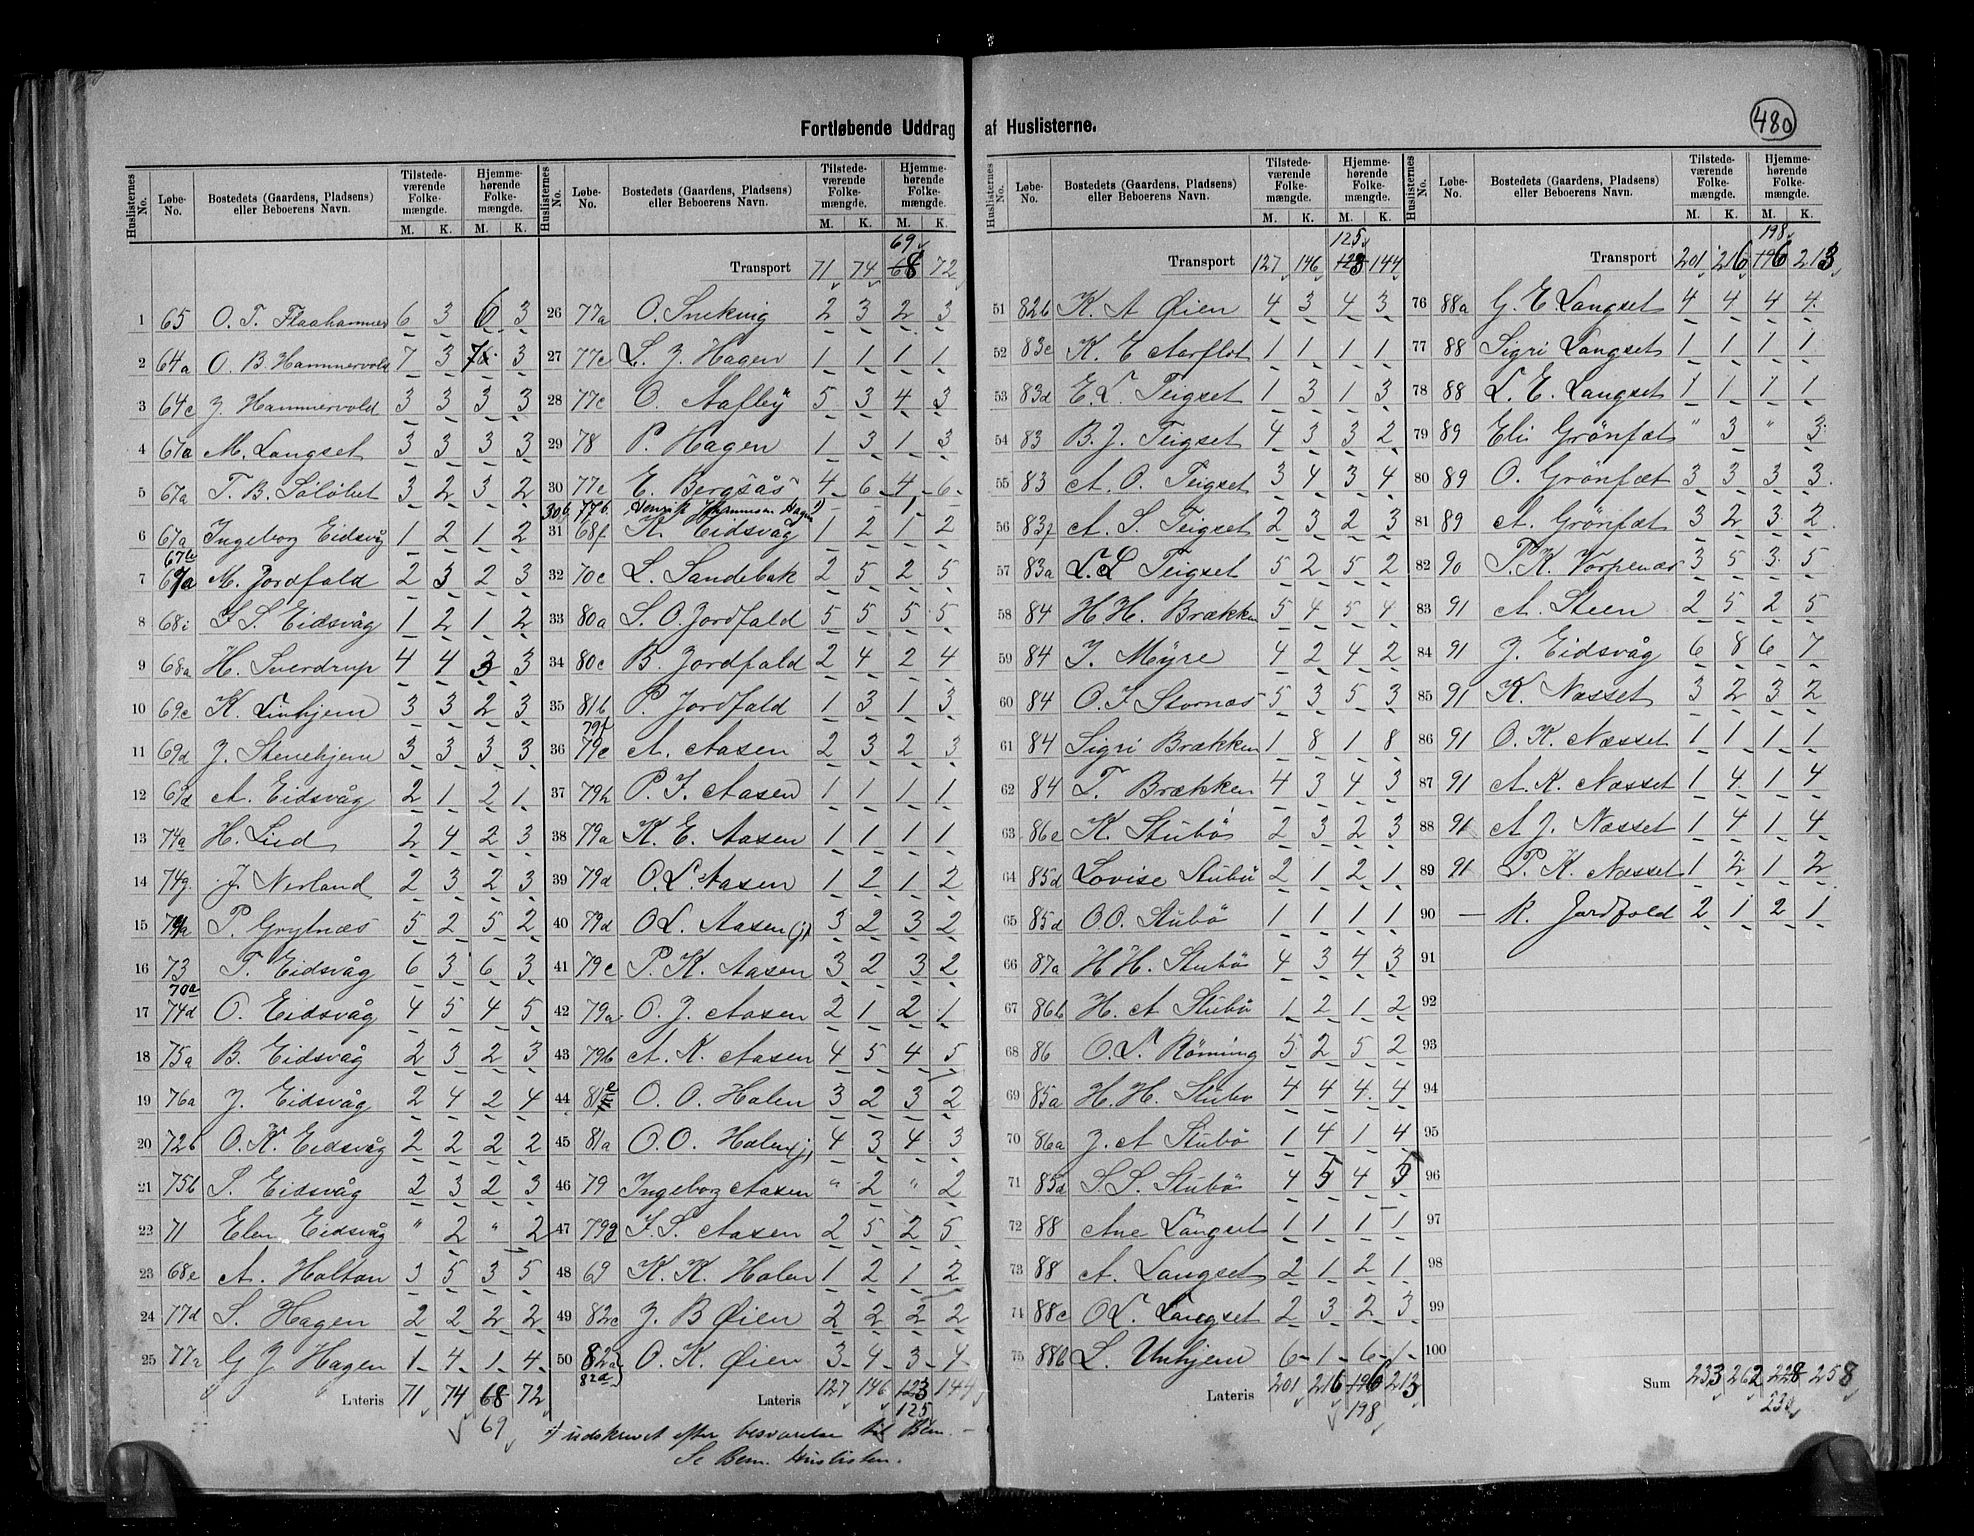 480
Fortløbende Uddrag af Huslisterne.
Huslisternes No. Løbe-No. Bostedets (Gaardens, Pladsens) eller Beboerens Navn. Tilstedeværende Folkemængde. M. K. Hjemmehørende Folkemængde. M. K.
1 65 O. T. Flaahammer 6 3 6 3
2 64a O. B. Hammervold 7 3 7 3
3 64c J. Hammervold 3 3 3 3
4 67a M. Langset 3 3 3 3
5 67a T. B. Sölöbet 3 2 3 2
6 67a Ingeborg Eidsvåg 1 2 1 2
67b
7 67a M. Jordfald 2 3 2 3
8 68i I S. Eidsvåg 1 2 1 2
9 68a H. Sverdrup 4 4 3 3
10 69c K. Linhjem 3 3 2 3
11 69d J. Stenehjem 3 3 3 3
12 69d A. Eidsvåg 2 1 2 1
13 74a H. Lied 2 4 2 3
14 74g. J. Nerland 2 3 2 3
15 74a P. Grytnæs 5 2 5 2
16 73 T. Eidsvåg 6 3 6 3
70a
17 74d O. Eidsvåg 4 5 4 5
18 75a B. Eidsvåg 2 3 2 3
19 76a J. Eidsvåg 2 4 2 4
20 72b O. K. Eidsvåg 2 2 2 2
21 75b S. Eidsvåg 2 3 2 3
22 71 Elen Eidsvåg " 2 " 2
23 68e A. Holtan 3 5 3 5
24 77d S. Hagen 2 2 2 2
25 77a G J Hagen 1 4 1 4
Lateris 71 74 68 72
69
Huslisternes No. Løbe-No. Bostedets (Gaardens, Pladsens) eller Beboerens Navn. Tilstedeværende Folkemængde. M. K. Hjemmehørende Folkemængde. M. K.
69
Transport 71 74 68 72
26 77a O. Snekvig 2 3 2 3
27 77c L. J. Hagen 1 1 1 1
28 77c O. Aafløy 5 3 4 3
29 78 P. Hagen 1 3 1 3
30 77e E. Bergsås 4 6 4 6
30b 77b. Henrik Hermansen Hagen 1)
31 68f K. Eidsvåg 1 2 1 2
32 70c L. Sandebak 2 5 2 5
33 80a L. O. Jordfald 5 5 5 5
34 80c B. Jordfald 2 4 2 4
35 81b P. Jordfald 1 3 1 3
79f
36 79e A. Aasen 2 3 2 3
37 79h P. I. Aasen 1 1 1 1
38 79a K. E. Aasen 1 1 1 1
39 79d O. L. Aasen 1 2 1 2
40 79d O L. Aasen (j) 3 2 3 2
41 79c P. K. Aasen 3 2 3 2
42 79a O. J. Aasen 2 1 2 1
43 79b A. K. Aasen 4 5 4 5
44 81e O. O. Holen 3 2 3 2
45 81a O. O. Holen (j) 4 3 4 3
46 79 Ingeborg Aasen " 2 " 2
47 79g I. S. Aasen 2 5 2 5
48 69 K. K. Holen 1 2 1 2
49 82c J. B Øien 2 2 2 2
50 82a O. K. Øien 3 4 3 4
82d
Lateris 127 146 123 144
125
1) udskrevet efter besvarelse til Bem. -
Se Bem. Huslisten.
Huslisternes No. Løbe-No. Bostedets (Gaardens, Pladsens) eller Beboerens Navn. Tilstedeværende Folkemængde. M. K. Hjemmehørende Folkemængde. M. K.
125
Transport 127 146 123 144
51 82b K. A Øien 4 3 4 3
52 83c K. E Aarflot 1 1 1 1
53 83d E. L. Teigset 1 3 1 3
54 83 B. J. Teigset 4 3 3 2
55 83 A. O. Teigset 3 4 3 4
56 83f A. S. Teigset 2 3 2 3
57 83a L. L Teigset 5 2 5 2
58 84 H H. Brækken 5 4 5 4
59 84 I. Myre 4 2 4 2
60 84 O. I Stornæs 5 3 5 3
61 84 Sigri Brækken 1 8 1 8
62 84 T. Brækken 4 3 4 3
63 86c K. Stubö 2 3 2 3
64 85d Lovise Stubö 2 1 2 1
65 85d O O. Stubö 1 1 1 1
66 87a H H. Stubö 4 3 4 3
67 86b H. A Stubö 1 2 1 2
68 86 O. L. Römning 5 2 5 2
69 85a H. H. Stubö 4 4 4 4
70 86a J. A Stubö 1 4 1 4
71 85d S. S. Stubö 4 5 4 5
72 88 Ane Langset 1 1 1 1
73 88 A. Langset 2 1 2 1
74 88c O L. Langset 2 3 2 3
75 88b L. Unhjem 6 1 6 1
Lateris 201 216 196 213
198
Huslisternes No. Løbe-No. Bostedets (Gaardens, Pladsens) eller Beboerens Navn. Tilstedeværende Folkemængde. M. K. Hjemmehørende Folkemængde. M. K.
198
Transport 201 216 196 213
76 88a G. E. Langset 4 4 4 4
77 88 Sigri Langset 1 1 1 1
78 88 L. E. Langset 1 1 1 1
79 89 Eli Grönfæt " 3 " 3
80 89 O. Grönfæt 3 3 3 3
81 89 A. Grönfæt 3 2 3 2
82 90 P. K. Vorpenæs 3 5 3 5
83 91 A. Steen 2 5 2 5
84 91 J. Eidsvåg 6 8 6 7
85 91 K. Næsset 3 2 3 2
86 91 O. K. Næsset 1 1 1 1
87 91 A. K. Næsset 1 4 1 4
88 91 A J. Næsset 1 4 1 4
89 91 P. K. Næsset 1 2 1 2
90 — K. Jordfold 2 1 2 1
91
92
93
94
95
96
97
98
99
100
Sum 233 262 228 258
230